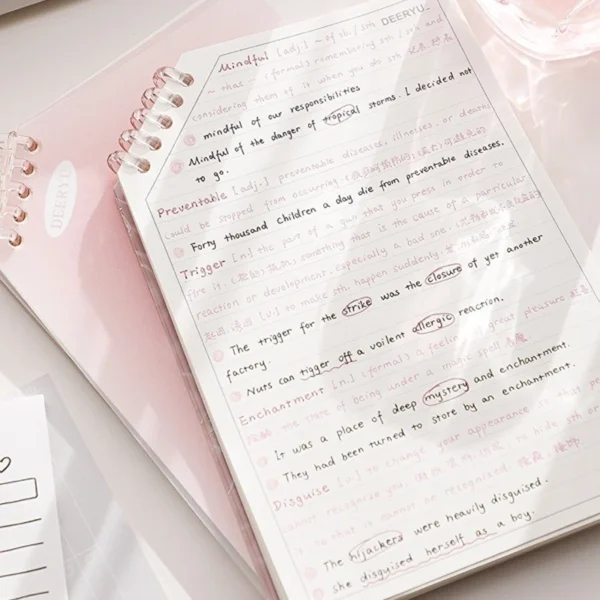 DEERYU
Mindful [adj.] ~ of sb / sth
~ that ~ (formal) remembering sb / sth and
considering them or it when you do sth
mindful of our responsibilities
Mindful of the danger of tropical storms. I decided not
to go.
Preventable [adj.] preventable diseases, illnesses, or deaths
could be stopped from occurring.
Forty thousand children a day die from preventable diseases.
Trigger [n.] the part of a gun that you press in order to
fire it. something that is the cause of a particular
reaction or development, especially a bad one.
[v.] to make sth. happen suddenly.
The trigger for the strike was the closure of yet another
factory.
Nuts can trigger off a voilent allergic reaction.
Enchantment [n.] (formal) a feeling great pleasure
the state of being under a magic spell
It was a place of deep mystery and enchantment.
They had been turned to store by an enchantment.
Disguise [v.] to change your appearance that
cannot recognize you. to hide sth or
that it cannot be recognised.
The hijackers were heavily disguised.
She disguised herself as a boy.
DEERYU